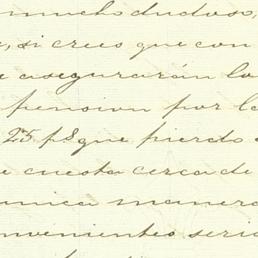 mucho dudoso,
, si crees que con
e asegurarán la
pension por la
25 p$ que pierdo
e cuesta cerca de
unica manera
nvenientes seria